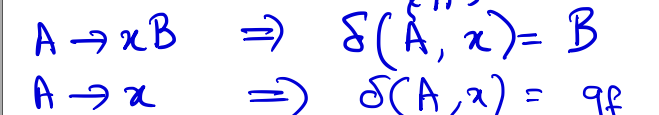 A → xB ⇒ δ(A, x) = B
A → x ⇒ δ(A, x) = qf